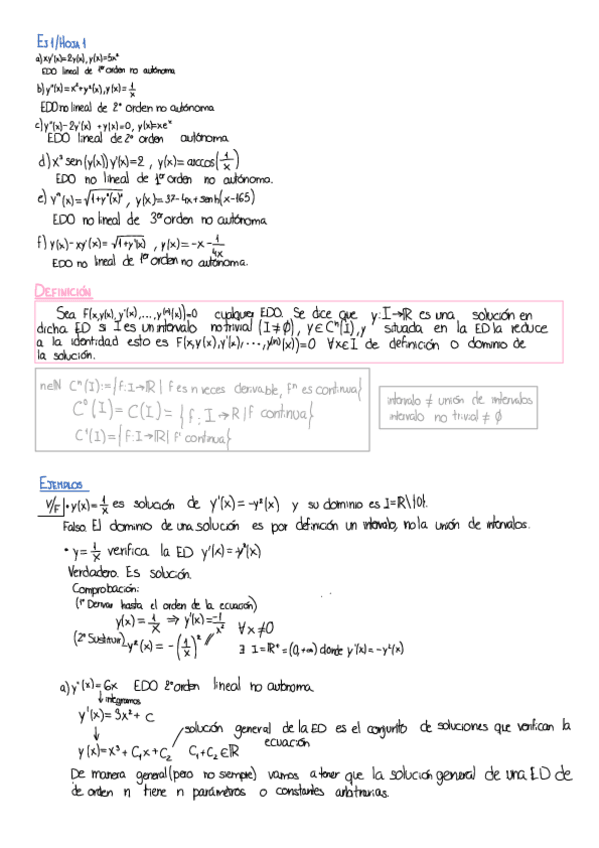 EJ1/HOJA 1
a) xy'(x)=2y(x), y(x)=5x²
EDO lineal de 1er orden no autónoma
b) y''(x)=x²+y²(x), y(x)=1/x
EDO no lineal de 2º orden no autónoma
c) y''(x)-2y'(x)+y(x)=0, y(x)=xeˣ
EDO lineal de 2º orden autónoma
d) x³ sen(y(x)) y'(x)=2, y(x)=arccos(1/x)
EDO no lineal de 1er orden no autónoma.
e) y'''(x)=√(1+y''(x)²), y(x)=37-4x+senh(x-165)
EDO no lineal de 3er orden no autónoma
f) y(x)-xy'(x)=√(1+y'(x)), y(x)=-x-1/4x
EDO no lineal de 1er orden no autónoma.
DEFINICIÓN
Sea F(x,y(x),y'(x),...,y⁽ⁿ⁾(x))=0 cualquier EDO. Se dice que y:I→ℝ es una solución en
dicha ED si I es un intervalo no trivial (I≠∅), y∈Cⁿ(I), y situada en la ED la reduce
a la identidad esto es F(x,y(x),y'(x),...,y⁽ⁿ⁾(x))=0 ∀x∈I de definición o dominio de
la solución.
n∈ℕ Cⁿ(I):={f:I→ℝ | f es n veces derivable, fⁿ es continua}
C⁰(I)=C(I)={f:I→ℝ | f continua}
C¹(I)={f:I→ℝ | f' continua}
intervalo ≠ unión de intervalos
intervalo no trivial ≠ ∅
EJEMPLOS
V/F | • y(x)=1/x es solución de y'(x)=-y²(x) y su dominio es I=ℝ\{0}.
Falso. El dominio de una solución es por definición un intervalo, no la unión de intervalos.
• y=1/x verifica la ED y'(x)=-y²(x)
Verdadero. Es solución.
Comprobación:
(1º Derivar hasta el orden de la ecuación)
y(x)=1/x ⇒ y'(x)=-1/x² ∀x≠0
(2º Sustituir) -y²(x)=-(1/x)² // ∃ I=ℝ⁺=(0,+∞) donde y'(x)=-y²(x)
a) y''(x)=6x EDO 2º orden lineal no autónoma
↓ integramos
y'(x)=3x²+C
↓ solución general de la ED es el conjunto de soluciones que verifican la
ecuación
y(x)=x³+C₁x+C₂ C₁+C₂∈ℝ
De manera general (pero no siempre) vamos a tener que la solución general de una ED de
de orden n tiene n parámetros o constantes arbitrarias.